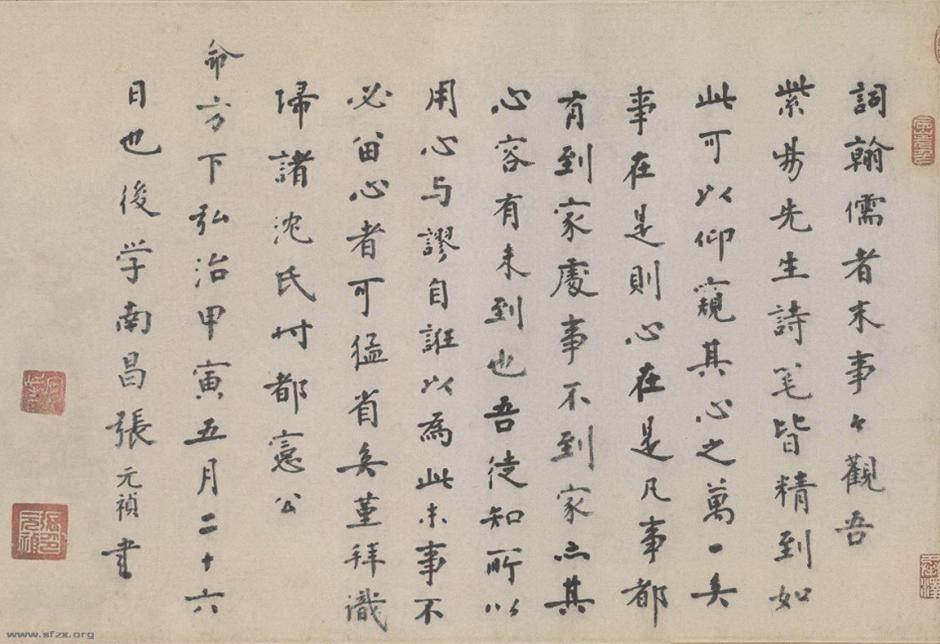 詞翰儒者末事々觀吾
紫昜先生詩笔皆精到如
此可以仰窺其心之萬一矣
事在是則心在是凡事都
有到家處事不到家亦其
心容有未到也吾徒知所以
用心与謬自誑以為此末事不
必畄心者可猛省矣堇拜識
歸諸沈氏时都憲公
命方下弘治甲寅五月二十六
日也後学南昌張元禎書
www.sfzx.org